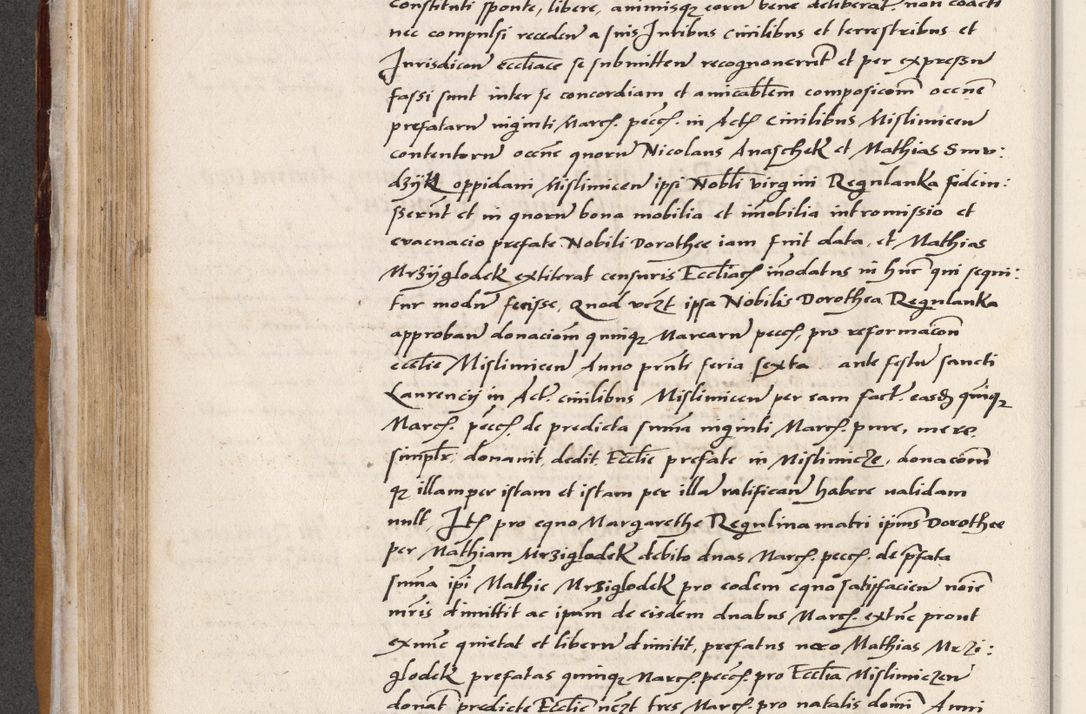 constituti sponte, libere, animisqȝ eorū bene deliberat. non coacti
nec compulsi recedeñ a suis Juribus Civilibus et terrestribus et
Jurisdicoñ eccliace se submitteñ recognoverūt et per expressū
fassi sunt inter se concordiam et amicabłem composicoīm occnē
prefatarū viginti Marcſ. peccſ. in Actſ Civilibus Mislimiceñ
contentorū occnē quorū Nicolaus Anaſchek et Mathias Smv:
dzyk oppidam Mislimiceñ ipsi Nobłi virgini Regulanka fideiu:
sserūt et in quorū bona mobilia et imobilia intromissio et
evacuacio prefate Nobili Dorothee iam fuit data, et Mathias
Mrzyglodek extiterat censuris Eccliacſ inodatus in huc qui sequi:
tur modū fecisse, Quod vcȝt ipsa Nobilis Dorothea Regulanka
approbañ donacioīm quinqȝ Marcarū peccſ. pro reformacoīn
ecclie Mislimiceñ Anno pruti feria sexta ante festū sancti
Laurencij in Actſ. civilibus Mislimiceñ per eam factſ. easdȝ quīqȝ
Marcſ. peccſ. de predicta suma viginti Marcſ. pure, mere,
simplr, donavit, dedit, Ecclie prefate in Mislimicze, donacoīm
qȝ illam per istam et istam per illā ratificañ habere validam
null, Jtſ pro equo Margarethe Regulina matri ipius Dorothee
per Mathiam Mrziglodek debito duas Marcſ. peccſ. de pfata
suma ipi Mathie Mrziglodek pro eodem equo satisfacieñ noie
mris dimittit ac ipam de eisdem duabus Marcſ. extūc prout
exnūc quietat et liberū dimitit, prefatus vero Mathias Mrzi:
glodek prefatas quinqȝ Marcſ. peccſ. pro Ecclia Mislimiczeñ
donat. predicte Ecclie vcȝt tres Marcſ. pro natalis domī Anni